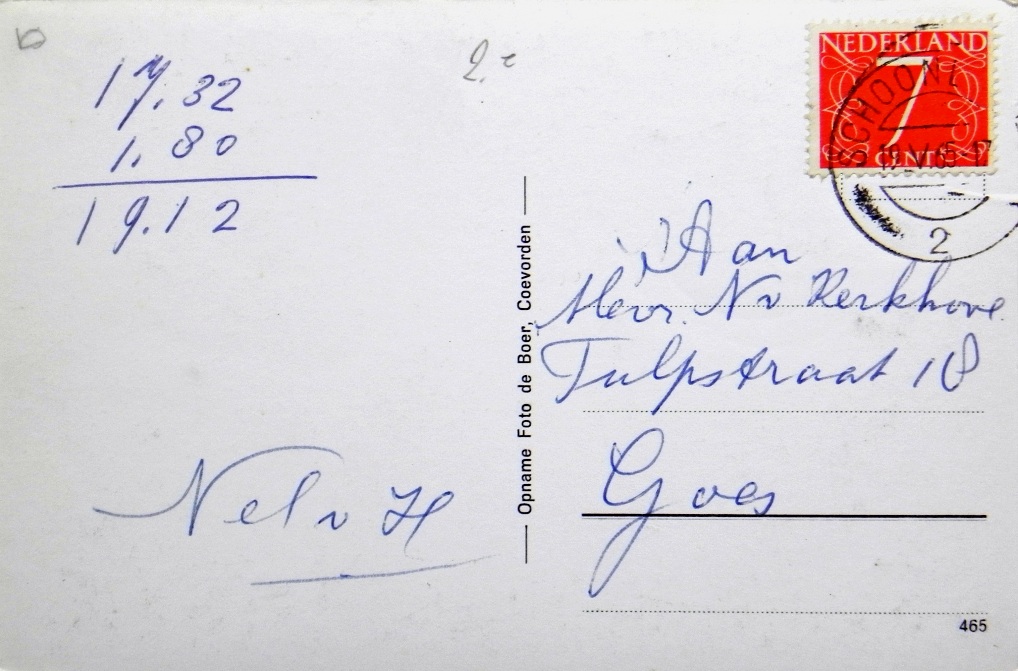 17.32
1.80
19.12
2.-
NEDERLAND
7
CENT
SCHOONL
19.V.65-17
2
Aan
Mevr. N v Kerkhove
Tulpstraat 18
Goes
Nel v H
Opname Foto de Boer, Coevorden
465